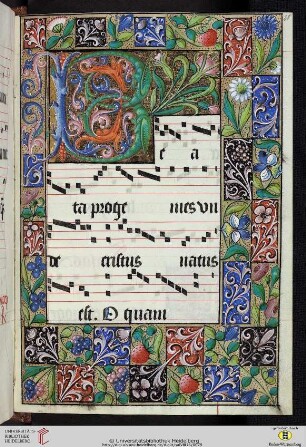 B e a
ta proge nies vn
de cristus natus
est. O quam
UNIVERSITÄTS-
BIBLIOTHEK
HEIDELBERG
© Universitätsbibliothek Heidelberg
Baden-Württemberg